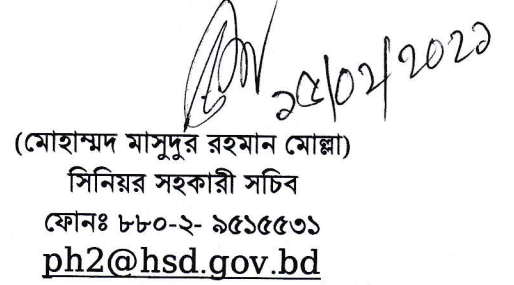 ১৫/০২/২০২১
(মোহাম্মদ মাসুদুর রহমান মোল্লা)
সিনিয়র সহকারী সচিব
ফোনঃ ৮৮০-২- ৯৫১৫৫৩১
ph2@hsd.gov.bd